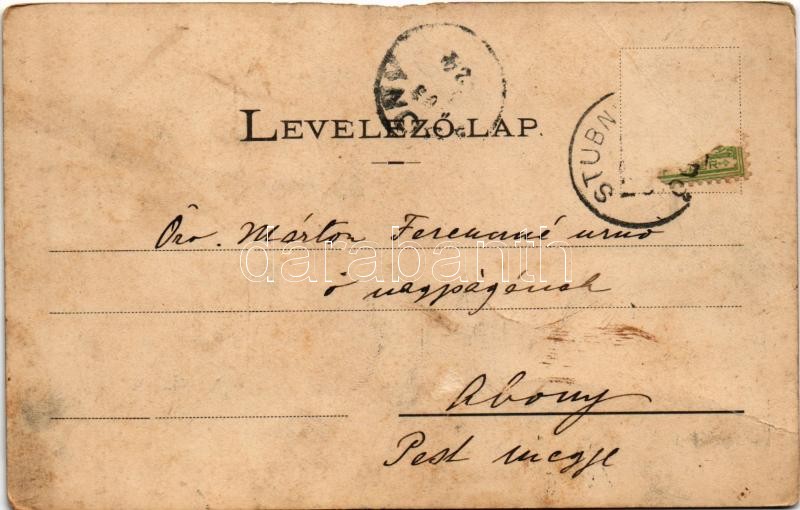 LEVELEZŐ-LAP.
STUBN
Özv. Márton Ferencné urnő
ő nagyságának
darabanth
Abony
Pest megye